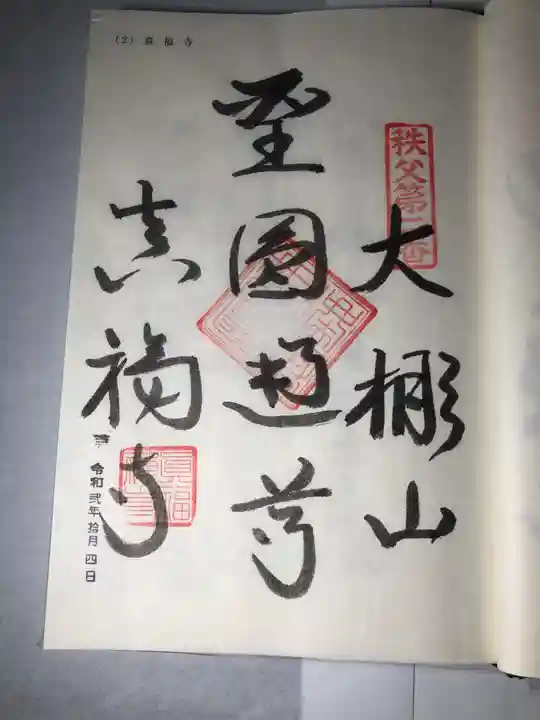 (2) 真福寺
秩父第二番
大棚山
聖圓通尊
真福寺
真福
令和弐年拾月四日